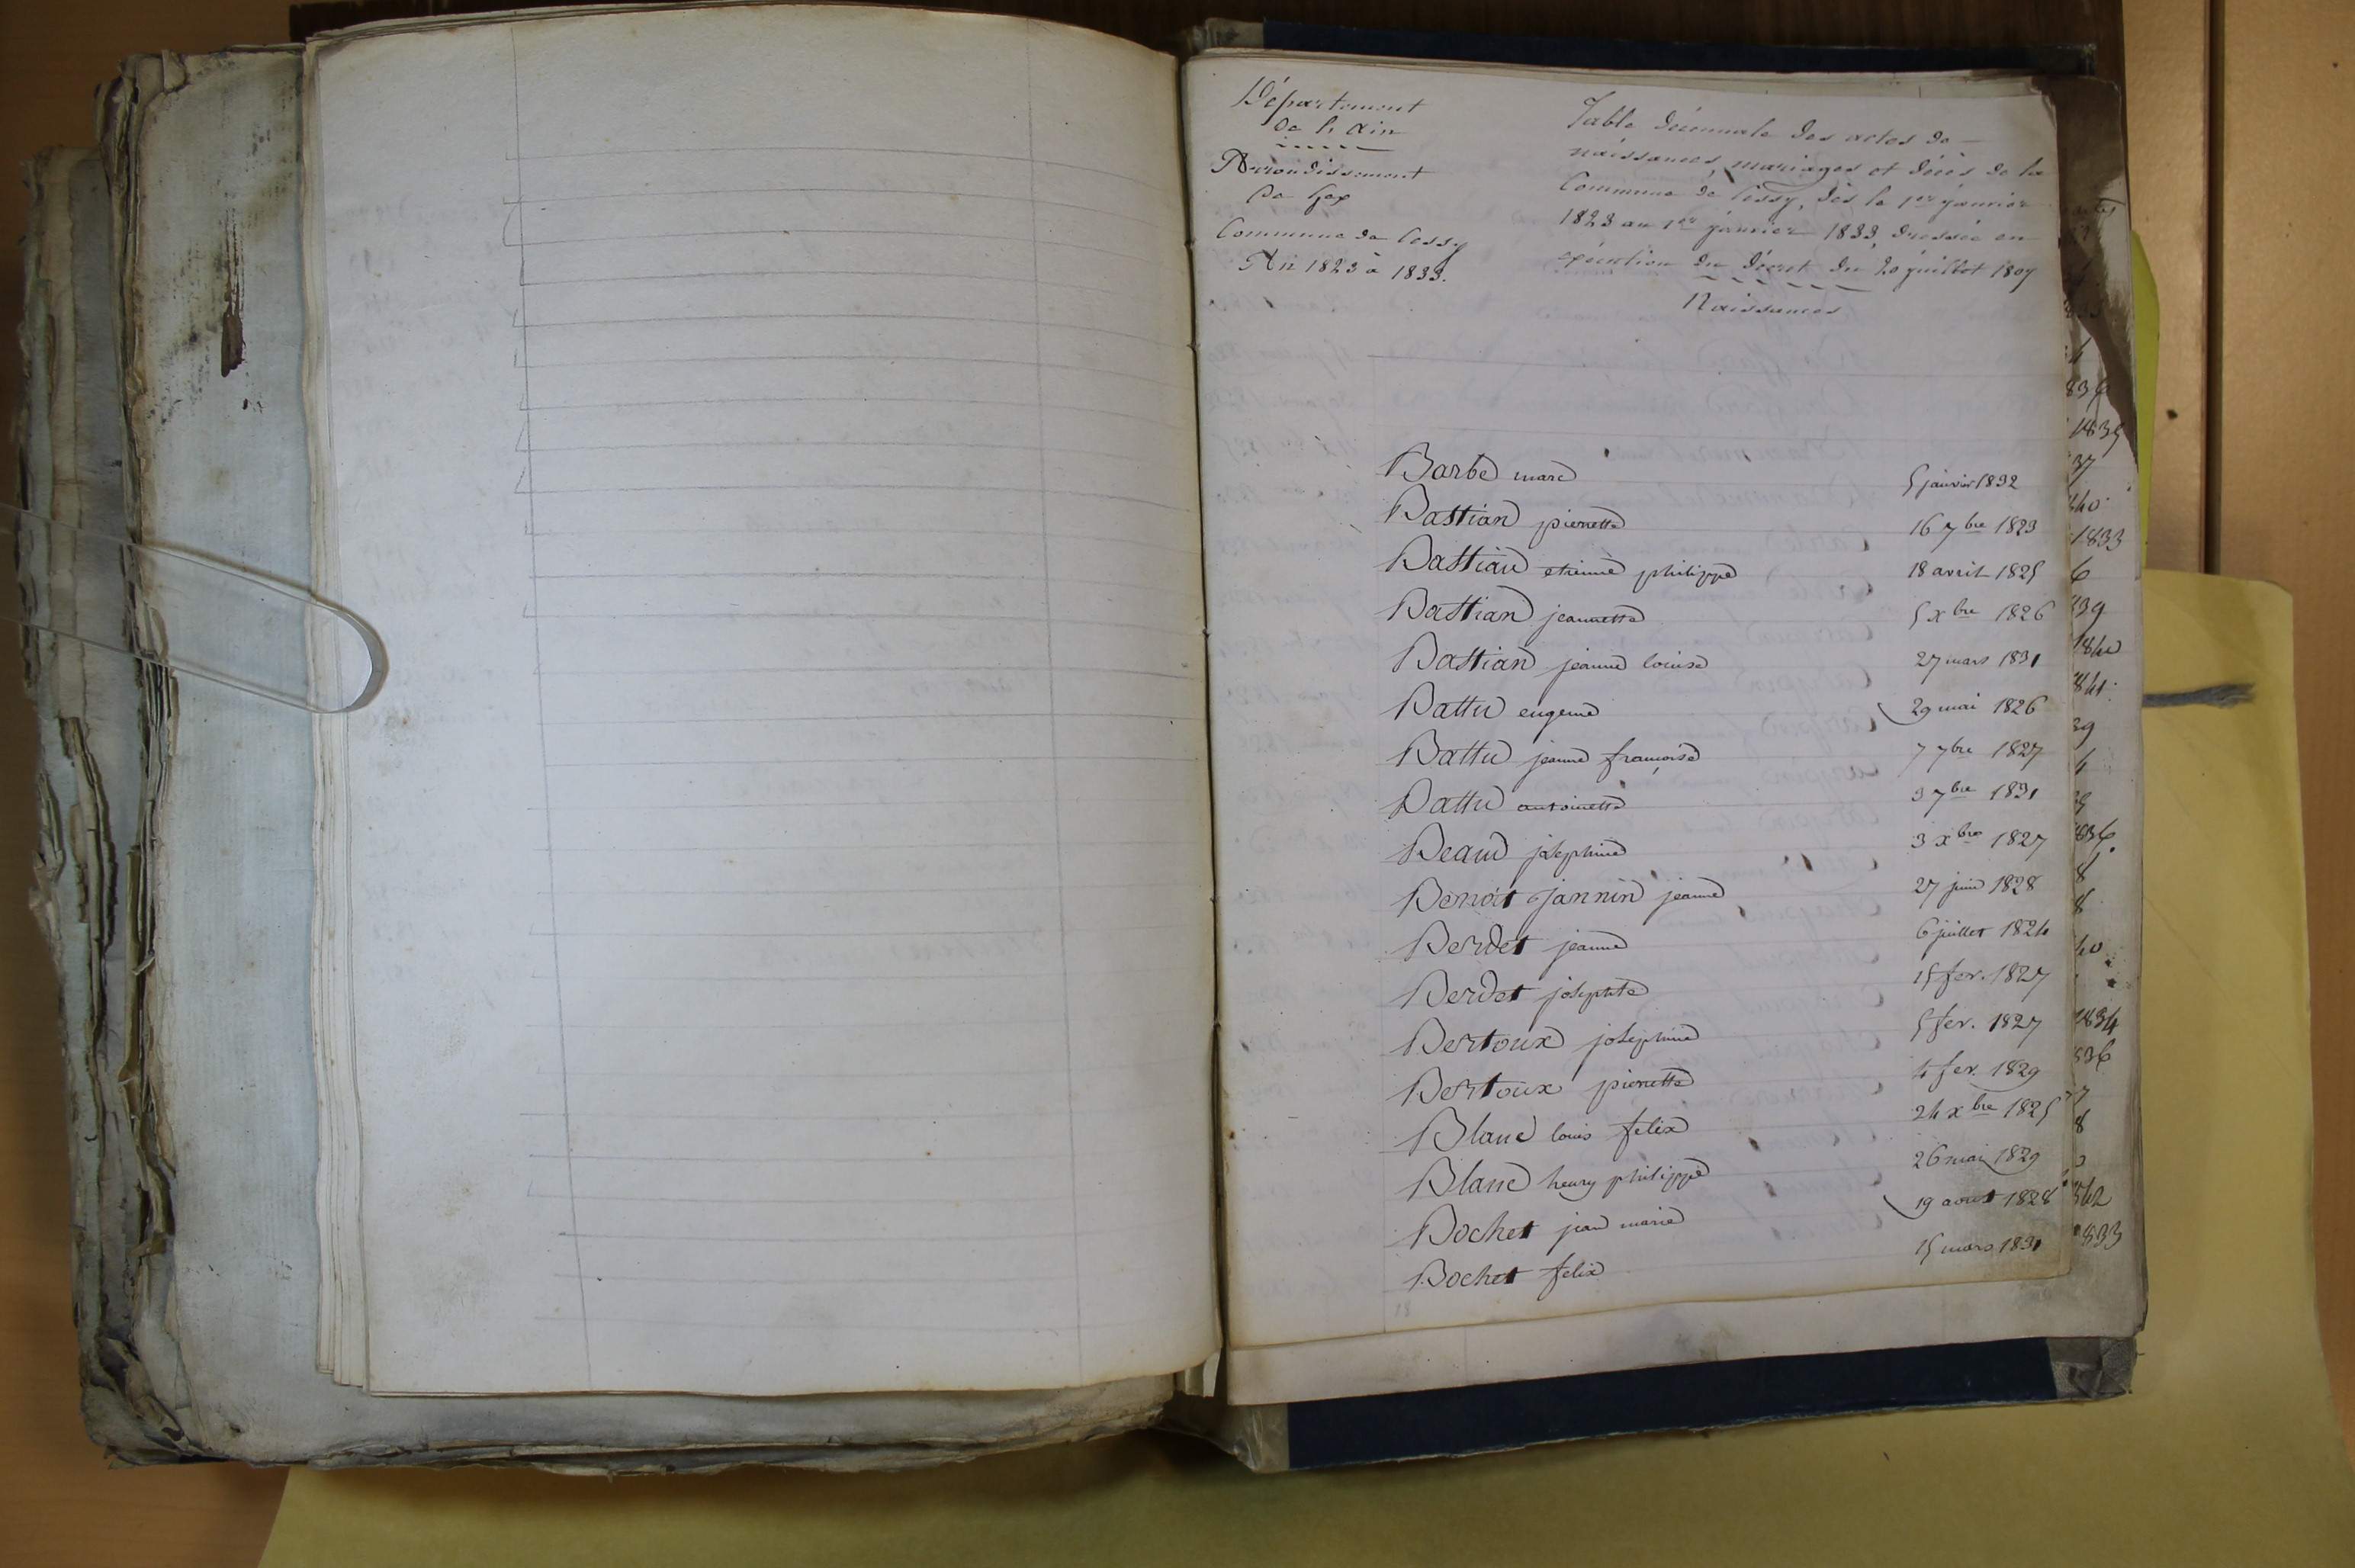 Département
de l'ain
Arrondissement
De Gex
Commune de Cessy
An 1823 à 1833.
Table décennale des actes de
naissances, mariages et décès de la
Commune de Cessy, dès le 1er janvier
1823 au 1er janvier 1833, dressée en
exécution du décret du 20 juillet 1807
Naissances
Barbe marc 5 janvier 1832
Bastian pierrette 16 7bre 1823
Bastian etienne philippe 18 avril 1825
Bastian jeannette 5 xbre 1826
Bastian jeanne louise 27 mars 1831
Battu eugenie 29 mai 1826
Battu jeanne françoise 7 7bre 1827
Battu antoinette 3 7bre 1831
Beaud josephine 3 xbre 1827
Benoit jannin jeanne 27 juin 1828
Berdet jeanne 6 juillet 1824
Berdet josephte 15 fev. 1827
Bertoux josephine 5 fev. 1827
Bertoux pierrette 4 fev. 1829
Blanc louis felix 24 xbre 1825
Blanc henry philippe 26 mai 1829
Bochet jean marie 19 aoust 1828
Bochet felix 15 mars 1831
18
1835
37
1833
6
39
1840
39
4
8
8
40
1834
836
7
8
833